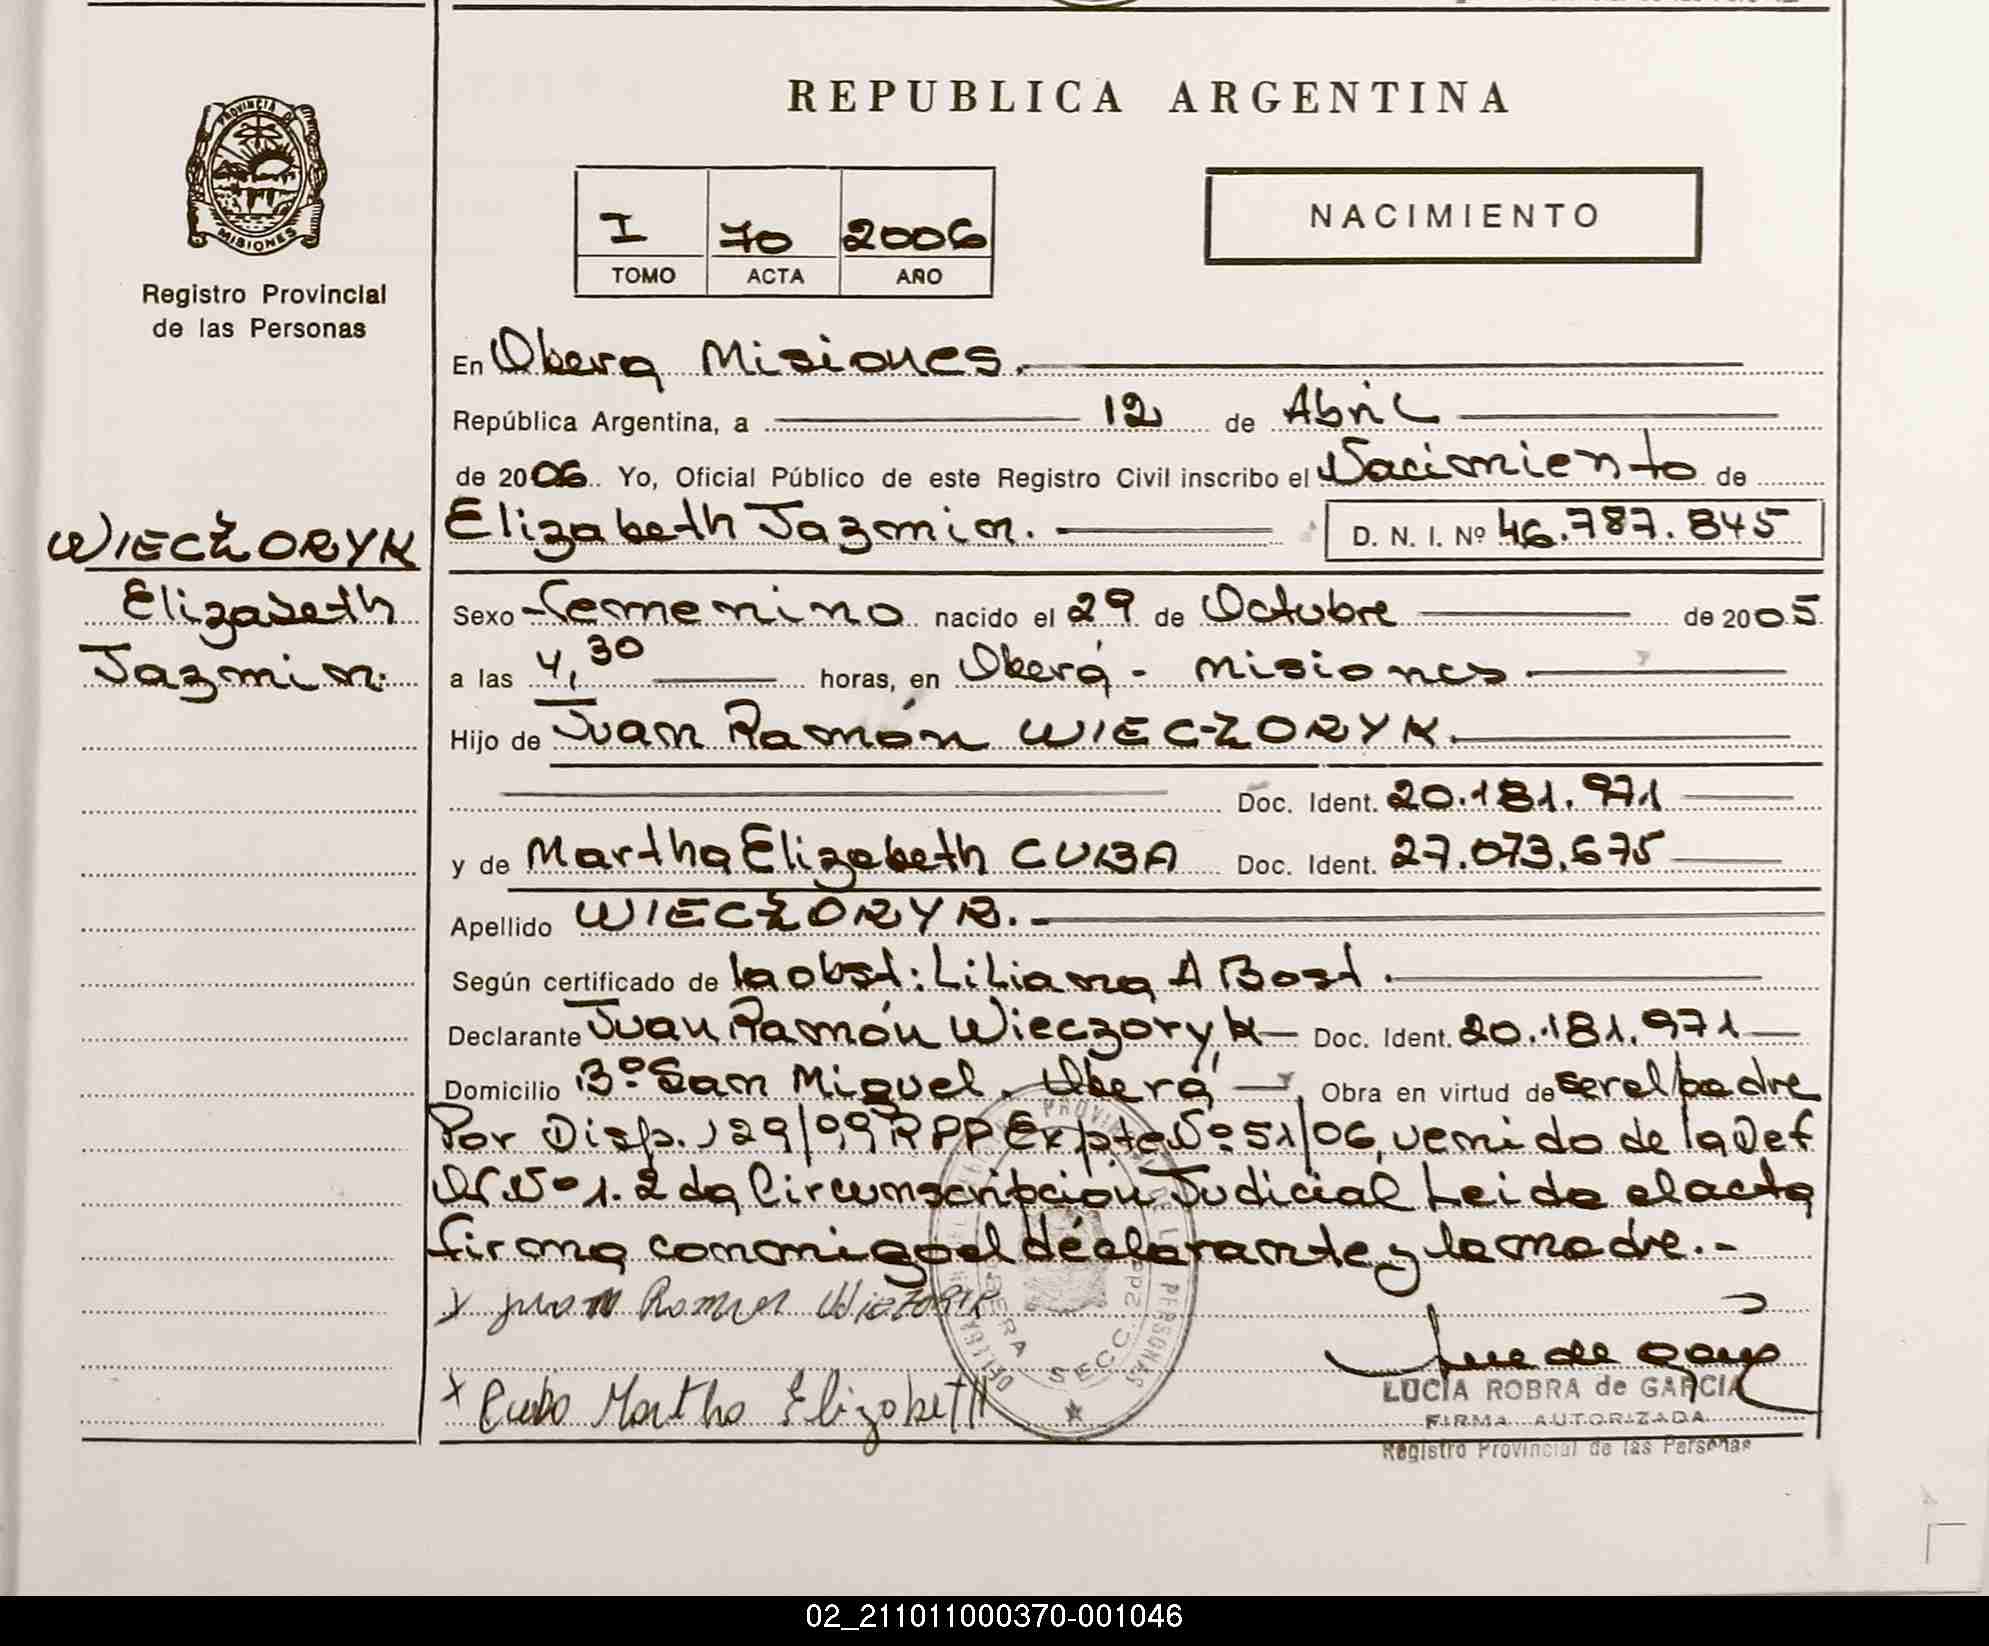 REPUBLICA ARGENTINA
PROVINCIA DE
MISIONES
Registro Provincial
de las Personas
I 70 2006
TOMO ACTA AÑO
NACIMIENTO
En Oberá Misiones.
República Argentina, a 12 de Abril
de 2006. Yo, Oficial Público de este Registro Civil inscribo el Nacimiento de
WIECZORYK
Elizabeth
Jazmin.
Elizabeth Jazmin. D. N. I. Nº 46.787.845
Sexo Femenino nacido el 29 de Octubre de 2005
a las 4,30 horas, en Oberá - Misiones
Hijo de Juan Ramón WIECZORYK.
Doc. Ident. 20.181.971
y de Martha Elizabeth CUBA Doc. Ident. 27.073.675
Apellido WIECZORYK.-
Según certificado de la obst: Liliana A Bost.
Declarante Juan Ramón Wieczoryk Doc. Ident. 20.181.971
Domicilio Bº San Miguel. Oberá Obra en virtud de ser el padre
Por Disp. 129/99 RPP Expte Nº 51/06, venido de la Def
Of Nº 1. 2da Circunscripción Judicial Leida el acta
firma conmigo el declarante y la madre.-
x Juan Ramon
x Cuba Martha Elizabeth
OBERA SECC. 2da
LUCIA ROBRA de GARCIA
FIRMA AUTORIZADA
Registro Provincial de las Personas
02_211011000370-001046